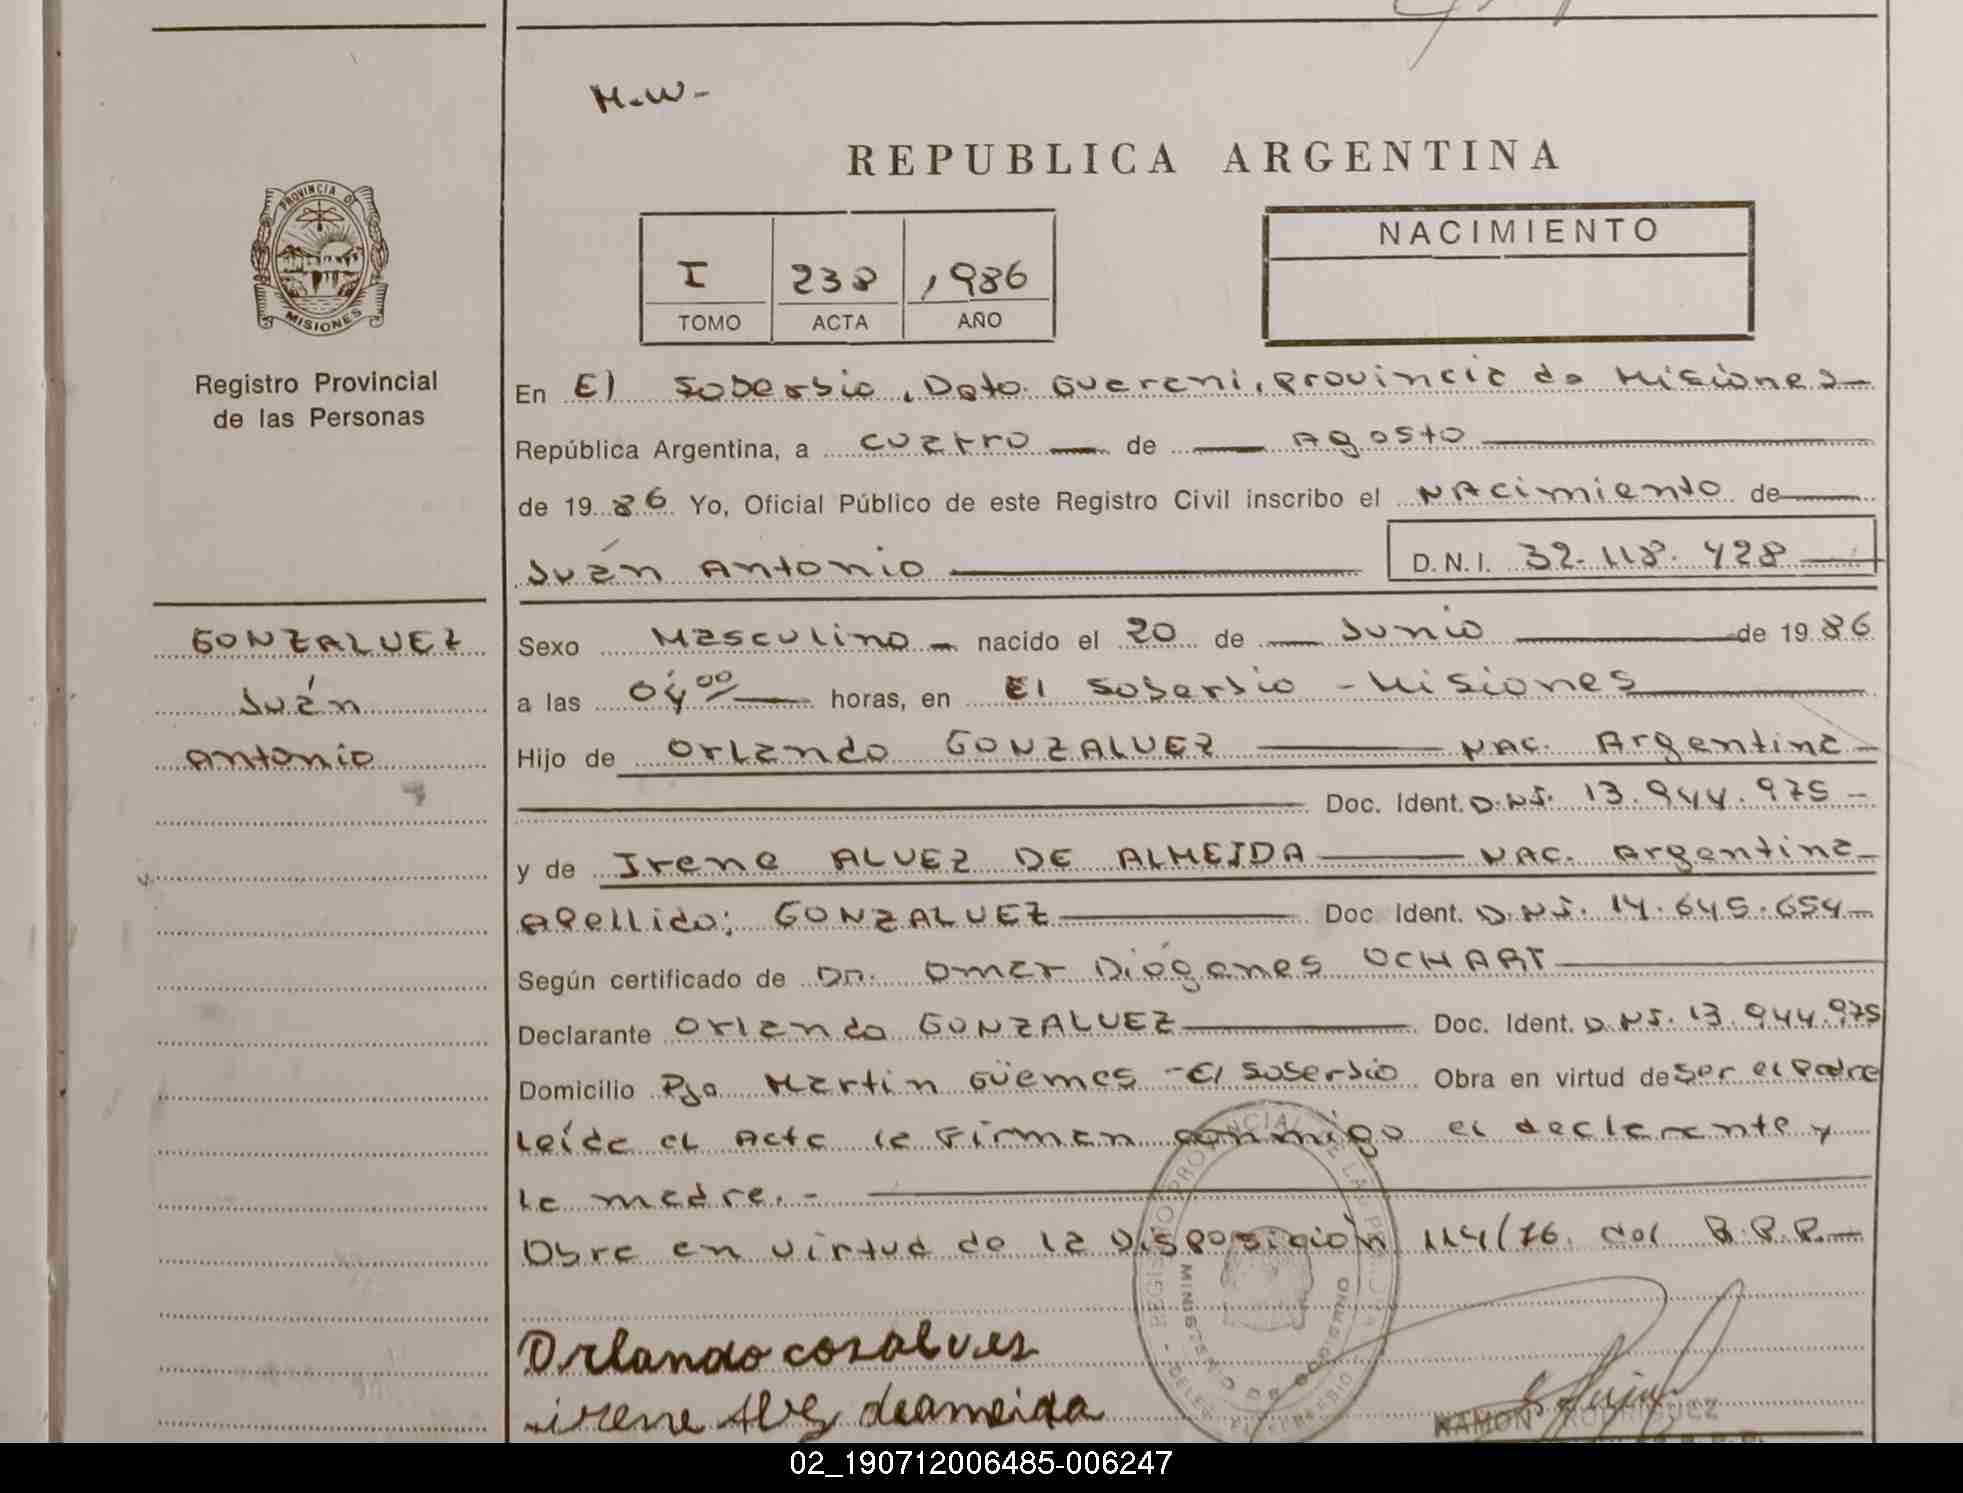 M.W-
REPUBLICA ARGENTINA
PROVINCIA DE
MISIONES
Registro Provincial
de las Personas
I 238 1986
TOMO ACTA AÑO
NACIMIENTO
En El Soberbio, Dpto. Guarani, provincia de Misiones
República Argentina, a cuatro de Agosto
de 1986 Yo, Oficial Público de este Registro Civil inscribo el NAcimiento de
Juán Antonio D.N.I. 32.118.428
GONZALVEZ
Juán
Antonio
Sexo Masculino nacido el 20 de Junio de 1986
a las 04 00 horas, en El Soberbio - Misiones
Hijo de Orlando GONZALVEZ NAC. Argentina
Doc. Ident. D.NI. 13.944.975
y de Irene ALVEZ DE ALMEIDA NAC. Argentina
Apellido: GONZALVEZ Doc. Ident. D.NI. 14.645.654
Según certificado de Dr. Omar Diógenes OCHART
Declarante Orlando GONZALVEZ Doc. Ident. D.NI. 13.944.975
Domicilio Pje Martin Güemes - El Soberbio Obra en virtud de ser el Padre
Leída el Acta la Firman conmigo el declarante y
la madre. -
Obra en virtud de la Disposición 114/76. del R.P.P.
Orlando cosalves
irene Alvz deameida
REGISTRO PROVINCIAL DE LAS PERSONAS
MINISTERIO DE GOBIERNO
RAMON RODRIGUEZ
02_190712006485-006247